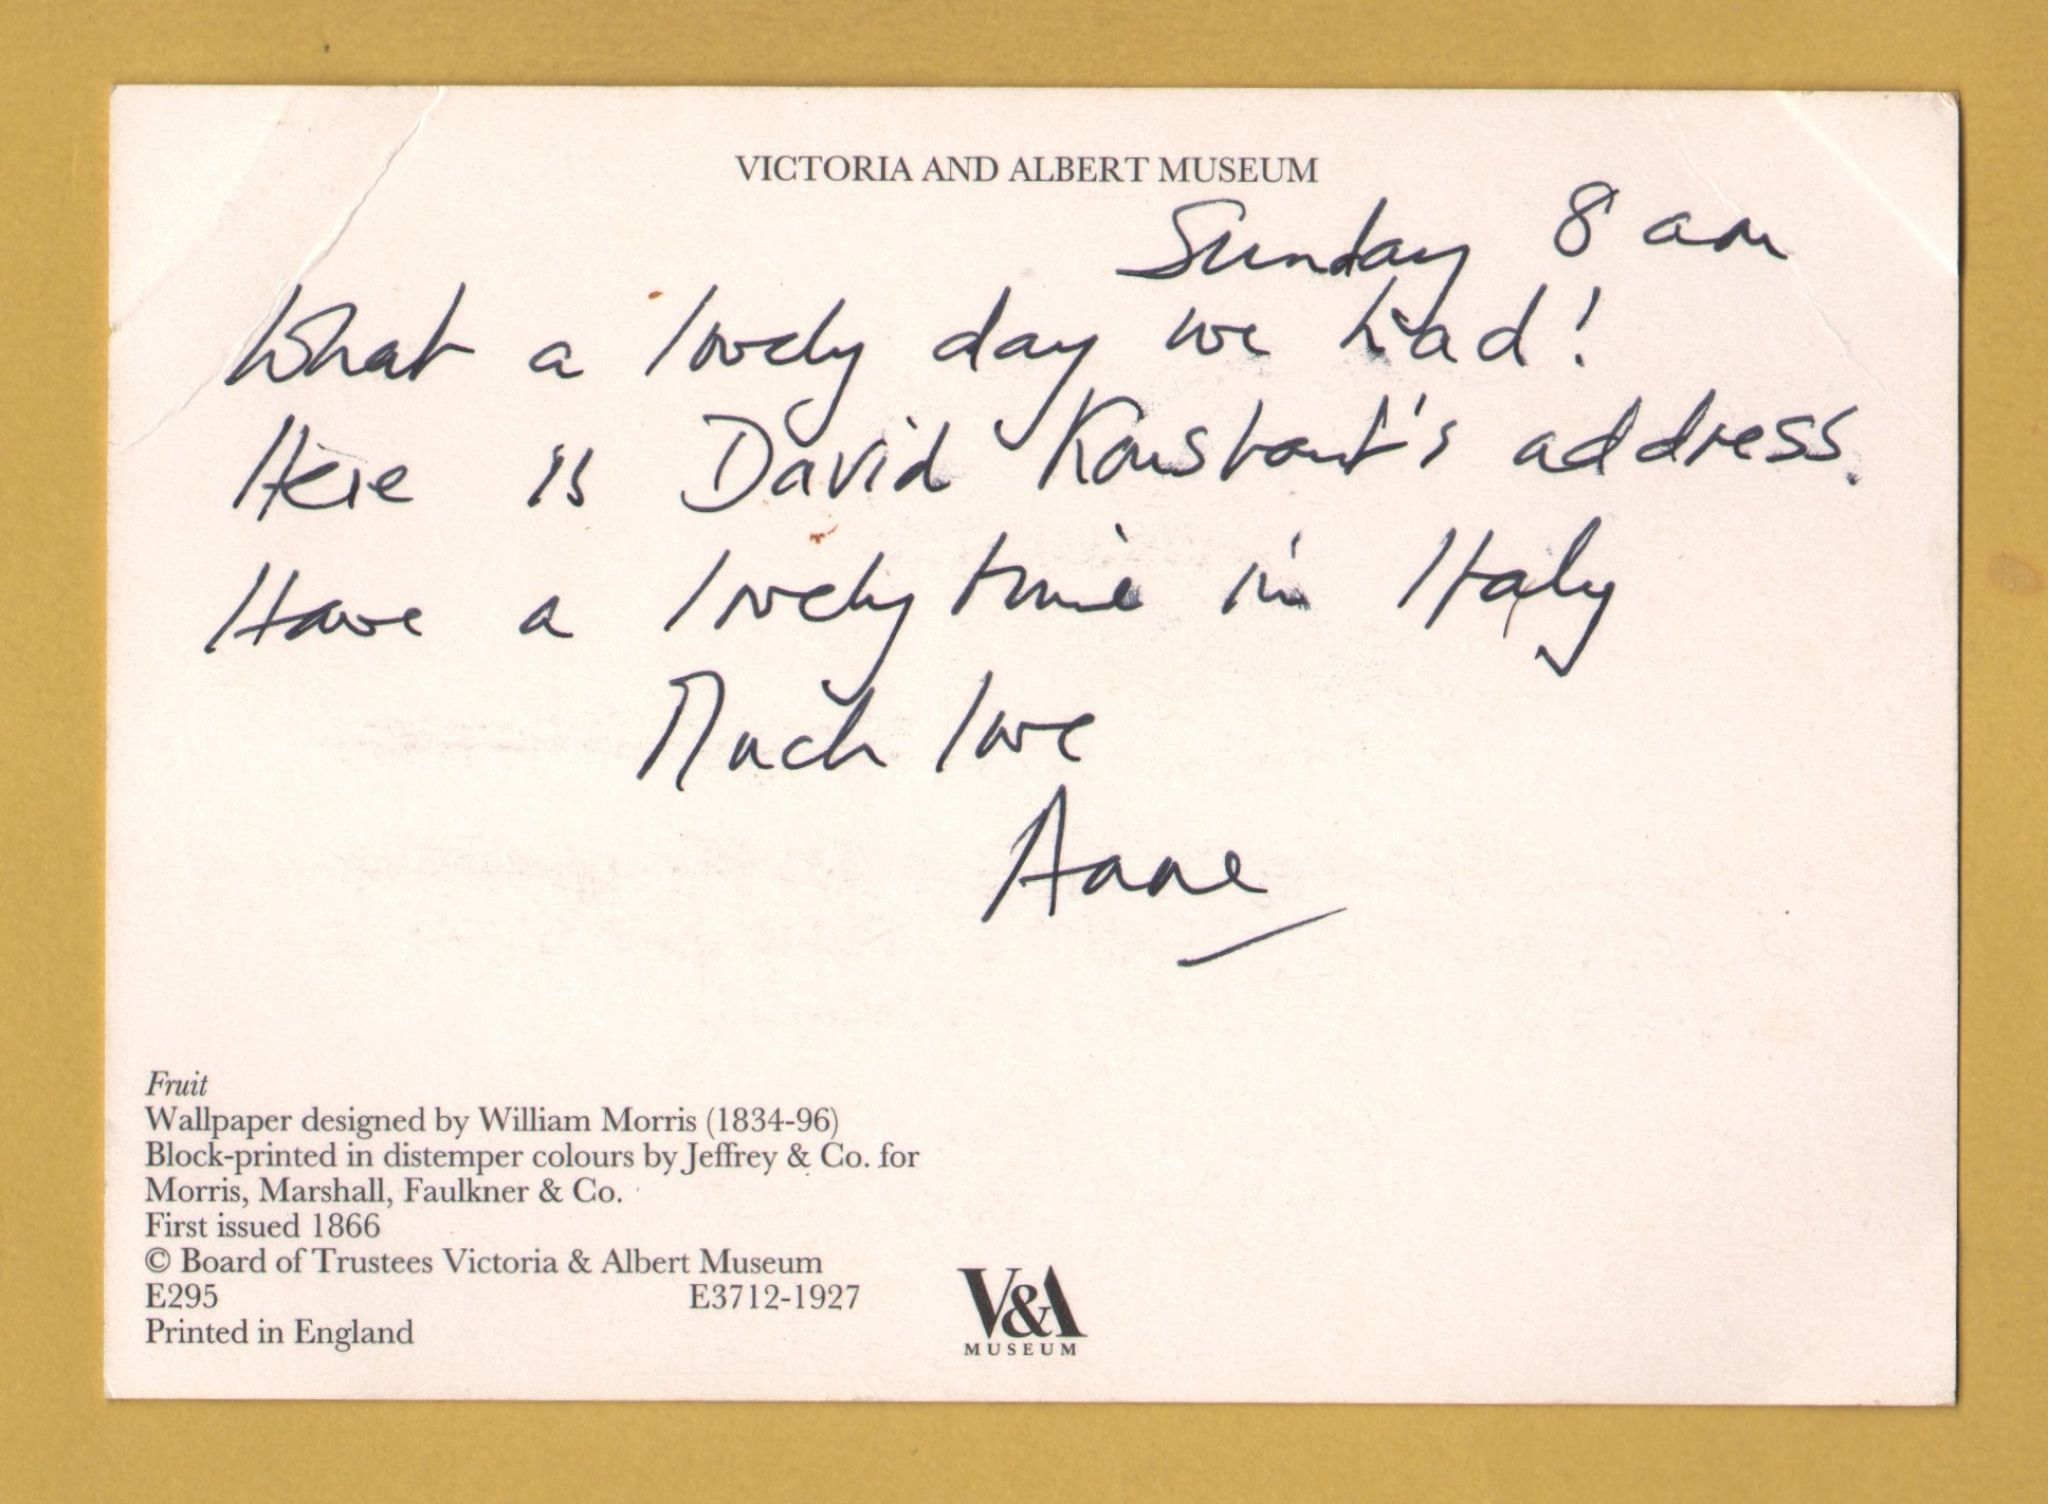 VICTORIA AND ALBERT MUSEUM
Sunday 8 am
What a lovely day we had!
Here is David Konstant's address.
Have a lovely time in Italy
Much love
Anne
Fruit
Wallpaper designed by William Morris (1834-96)
Block-printed in distemper colours by Jeffrey & Co. for
Morris, Marshall, Faulkner & Co.
First issued 1866
© Board of Trustees Victoria & Albert Museum
E295 E3712-1927
Printed in England
V&A
MUSEUM